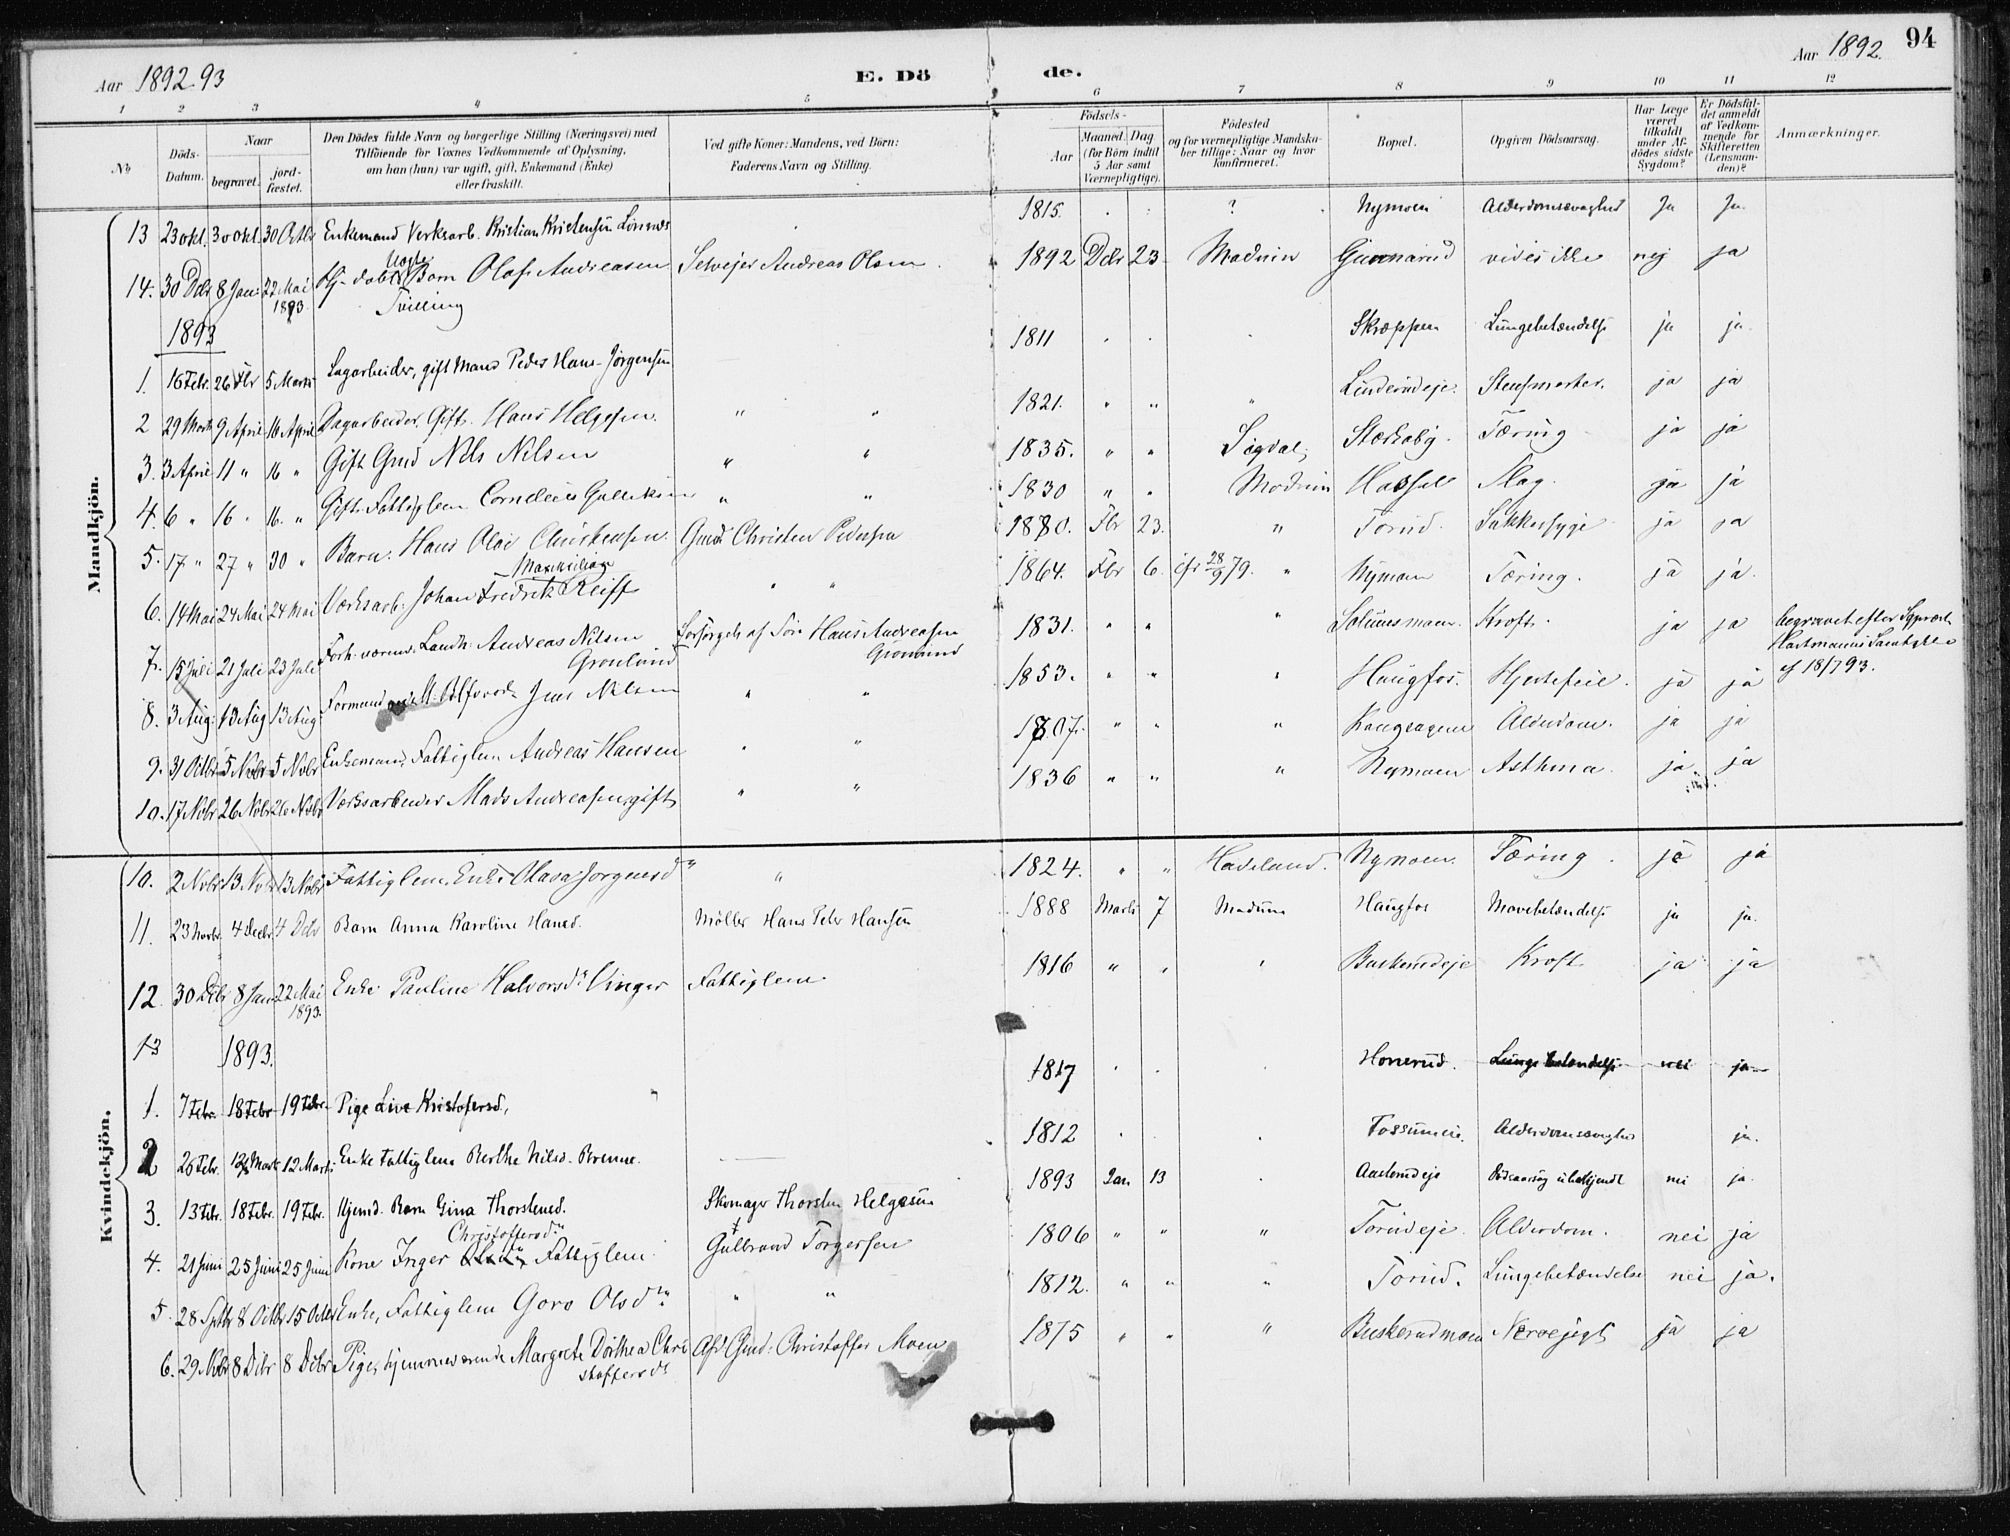 Aar 1892.93
E. Dö
de.
Aar 1892.
94
1 2 3 4 5 6 7 8 9 10 11 12
No
Döds-Datum.
Naar
begravet.
jord-fæstet.
Den Dödes fulde Navn og borgerlige Stilling (Næringsvei) med
Tilföiende for Voxnes Vedkommende af Oplysning,
om han (hun) var ugift, gift, Enkemand (Enke)
eller fraskilt.
Ved gifte Koner: Mandens, ved Börn:
Faderens Navn og Stilling.
Födsels-
Aar
Maaned. Dag
(for Börn indtil
5 Aar samt
Værnepligtige).
Födested
og for værnepligtige Mandska-
ber tillige: Naar og hvor
konfirmeret.
Bopæl.
Opgiven Dödsaarsag.
Har Læge
været
tilkaldt
under Af-
dödes sidste
Sygdom?
Er Dödsfal-
det anmeldt
af Vedkom-
mende for
Skifteretten
(Lensman-
den)?
Anmærkninger.
Mandkjön.
13 23 okt. 30 okt. 30 Octbr Enkemand Verksarb. Kristian Kristensen 1815. ? Nymoen Alderdomssvaghed Ja Ja.
14. 30 Dcbr 8 Jan. 22 Mai 1893 Hj. døbt Barn Olaf Andreasen Tvilling Selvejer Andreas Olsen 1892 Dcbr 23 Modum Gunnarud vides ikke nej ja
1893
1. 16 Febr. 26 Fbr 5 Marts Sagarbeider, gift Mand Peder Hans Jørgensen 1811 Skræppen Lungebetændelse ja ja.
2 29 Marts 9 April 16 April Dagarbeider Gift. Hans Helgesen. " " 1821. " " " Linderudeje. ja ja
3. 3 April 11 " 16 " Gift Gmd Nils Nilsen " " 1835. " " Sigdal. Stærkeby. Tæring ja ja
4. 6 " 16 " 16. " Gift Fattiglem Cornelius Gulliksen " " 1830 " " Modum Hassel Slag. ja ja
5. 17 " 27 " 30 " Barn. Hans Olai Christensen. Gmd. Christen Pedersen 1880. Fbr 23. " Torud. Sukkersyge ja ja
6. 14 Mai 24 Mai 24 Mai Værksarb. Johan Fredrik Maximilian Reiff " " 1864. Fbr 6. cfr 28/9 79. " Nymoen Tæring. ja ja.
7. 15 Juli 21 Juli 23 Juli Forh. værens. Landh. Andreas Nilsen Grønlund Forsørges af Søn Hans Andreasen Grønlund 1831. " " " Kræft. ja ja begravet efter
Hartmanns Samtykke
af 18/7 93.
8. 3 Aug. 13 Aug 13 Aug. Formand Jens Nilsen " " 1853. " " " Haugfos. Hjertefeil. ja ja
9. 31 Octbr 5 Nvbr 5 Nvbr Enkemand, Fattiglem Andreas Hansen " " 1807. " " " Alderdom. ja ja
10. 17 Nvbr 26 Nvbr 26 Nvbr Værksarbeider Mads Andreasen, gift " " 1836 " " " Nymoen Asthma. ja ja
Kvindekjön.
10. 2 Nvbr 13 Nvbr 13 Nvbr Fattiglem, Enke Olava Jorgensd " " 1824. " " Hadeland. Nymoen. Tæring. ja ja
11. 23 Novbr. 4 Decbr. 4 Dcbr Barn Anna Karoline Hansd. Møller Hans Peter Hansen 1888 Marts 7 Modum Haugfos Mavebetændelse ja ja.
12. 30 Dcbr 8 Jan. 22 Mai 1893. Enke Pauline Halvorsd. Vinger Fattiglem 1816 " " " Buskerudeje Kræft ja ja
13 1893.
1. 7 Febr. 18 Febr 19 Febr. Pige Live Kristofersd. 1817 Honerud. Lungebetændelse nei ja
2 26 Febr. 12 Marts 12 Marts Enke Fattiglem Berthe Nilsd. Brenne. 1812 Fossumeie. Alderdomssvaghed ja.
3. 13 Febr. 18 Febr. 19 Febr. Hjemd. Barn Gina Thorstensd. Skomager Thorsten Helgesen 1893 Jan 13 Dødsaarsag ubekjendt nei ja.
4. 21 Juni 25 Juni 25 Juni Kone Inger Olsd. Christoffersd. Fattiglem Gulbrand Torgersen 1806 " " " Torudeje. Alderdom. nei ja
5. 28 Sptbr 8 Octbr 15 Octbr Enke, Fattiglem Goro Olsd. " " 1812. " " " Torud. Lungebetændelse nei ja.
6. 29 Nvbr 8 Dcbr 8 Dcbr Pige, hjemmeværende Margrete Dorthea Christoffersd. Afd. Gmd. Christoffer Moen 1875 " " " Buskerudmoen ja ja